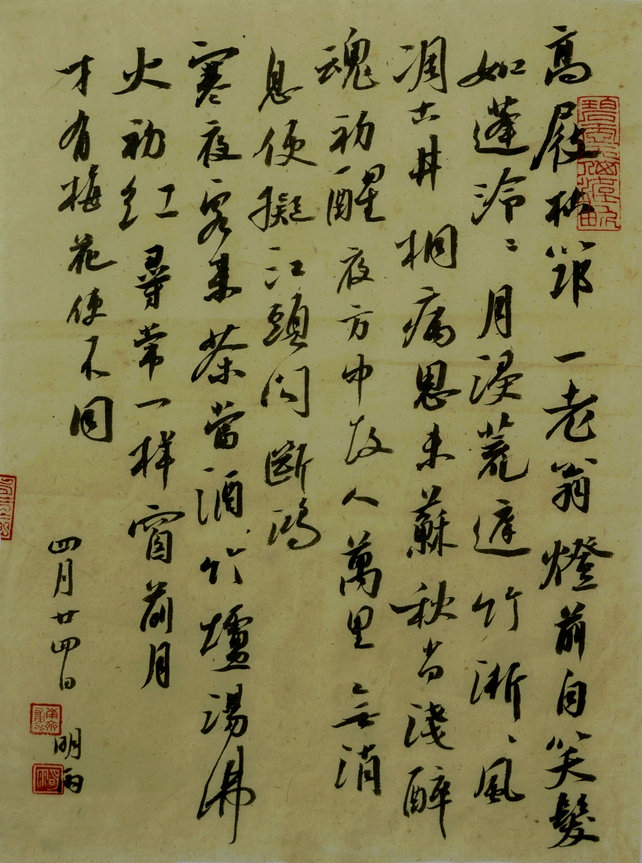 高屐筇一老翁燈前自笑髮
如蓬泠〻月浸荒庭竹淅〻風
凋古井桐病思未蘇秋尚淺醉
魂初醒夜方中故人萬里無消
息便擬江頭問斷鴻
寒夜客來茶當酒竹爐湯沸
火初紅尋常一樣窗前月
才有梅花便不同
四月廿四日
明雨